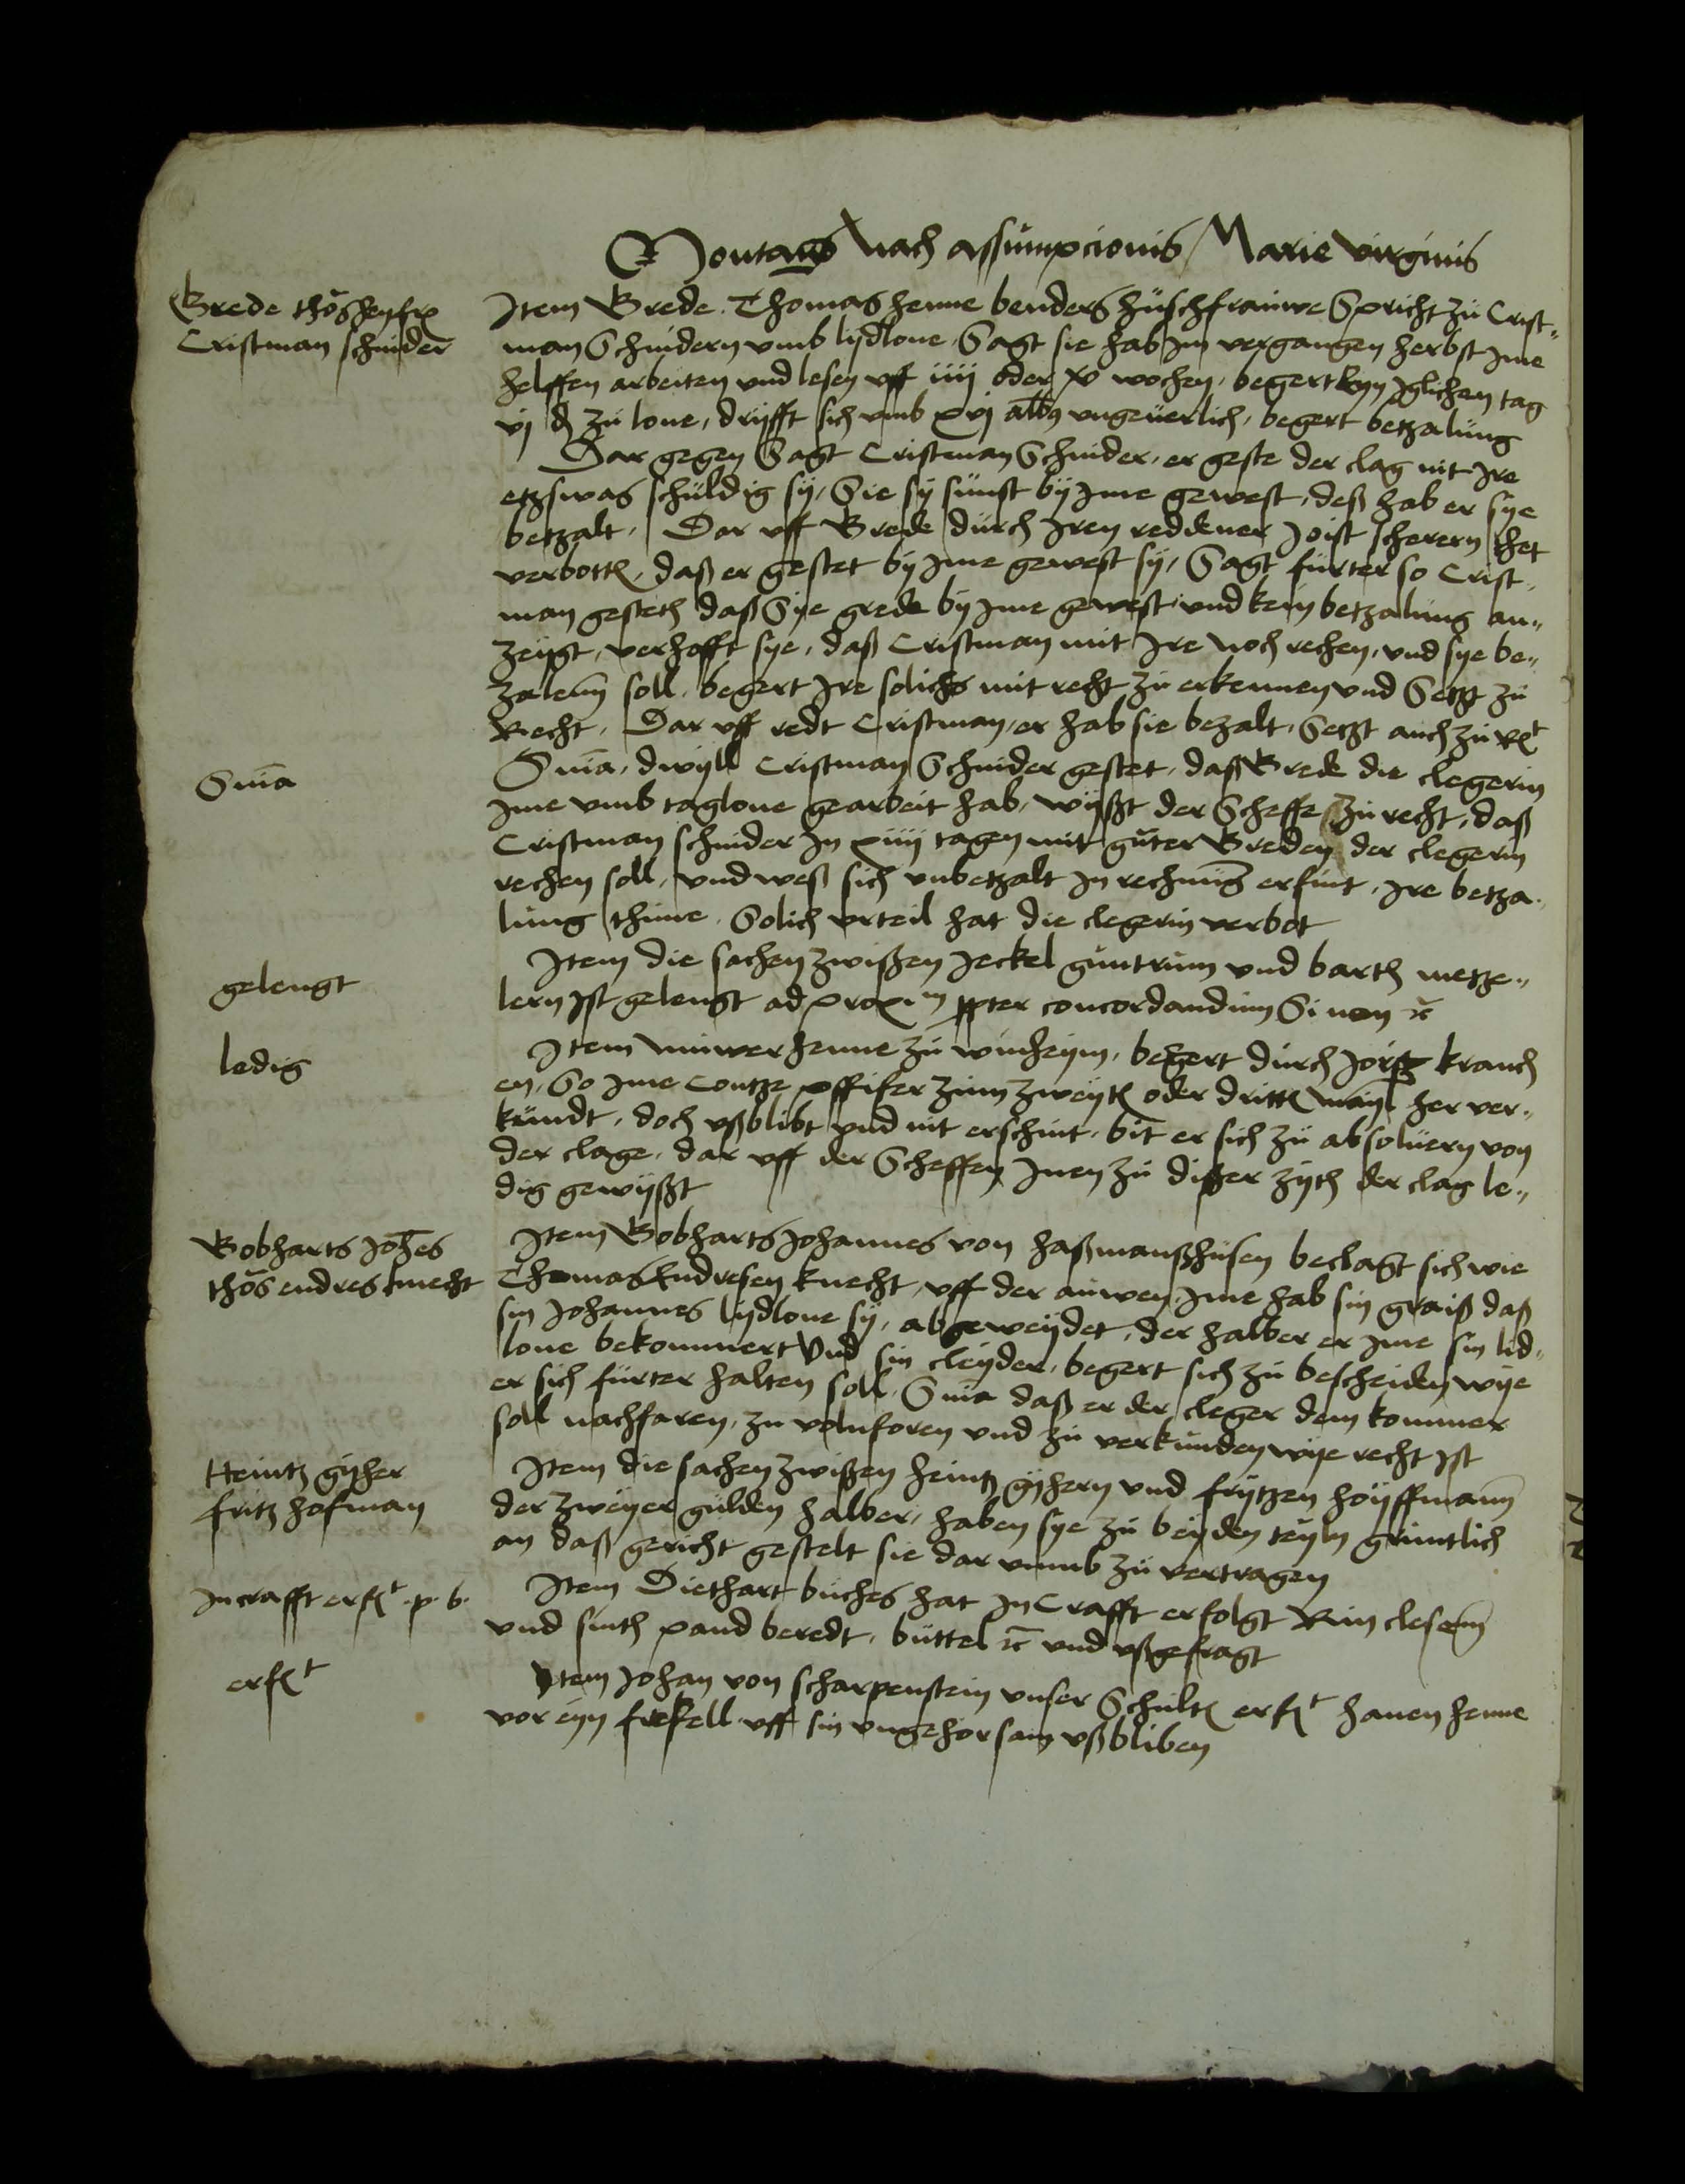 Montags Nach assumpcionis Marie virginis
Grede thoßhenfrau
Cristman schnider
Item Grede Thomas henne benders hußfrauwe Spricht zu Crist-
man Schnidern vmb lydlone Sagt sie hab im vergangen herbst ime
helffen arbeiten vnd lesen vff iiij oder v wochen, begert eyn Iglichen tag
vj d zu lone, drifft sich vmb xvj alb vngeuerlich, begert betzalung
Dar gegen Sagt Cristman Schnider, er geste der clag nit Ire
etzswas schuldig sy, Sie sy sunst by ime gewest, deß hab er sye
betzalt. Dar vff Grede durch Iren reddener Joist scherern thet
verbotten, daß er gestet by ime gewest sy, Sagt furter so Crist-
man gesteth daß Sye grede by ime gewest vnd kein betzalung an-
zeygt, verhofft sye, daß Cristman mit Ire noch rechen, vnd sye be-
zalenn soll, begert Ire solichs mit recht zu erkennen vnd Setzt zu
Recht, Dar vff redt Cristman, er hab sie bezalt, Setzt auch zu Rt
Snia
Snia, dwyll Cristman Schnider gestet, daß Grede die clegerin
ime vmb taglone gearbeit hab, wyßt der Scheffe zu recht, daß
Cristman schnider In xiiij tagen mit guter Greden der clegerin
rechen soll, vnd weß sich vnbetzalt In rechnung erfint, Ire betza-
lung thune. Solich vrteil hat die clegerin verbot
gelengt
Item die sachen zwißen Jeckel guntrum vnd barth metze-
lern Ist gelengt ad proxm ppter concordandum Si non rc
ledig
Item nuwer henne zu winheym, begert durch Jorg kranch
en, So ime Contze pffifer zum zweyten oder dritten mayl her ver-
kundt, doch vßblibt vnd nit erschint, bit er sich zu absoluern von
der clage, dar vff der Scheffen Inen zu dißer zyth der clag le-
dig gewyßt
Bobharts Johes
thos endres knecht
Item Bobharts Johannes von haßmanßhusen beclagt sich wie
Thomas Endresen knecht, vff der auwen, ime hab sin graiß daß
sin Johannes lydlone sy, abgeweydet, der halber er ime sin lid-
lone bekommert Vnd sin cleyder, begert sich zu bescheiden wye
er sich furter halten soll, Snia daß er der cleger dem kommer
soll nachfaren, zu volnforen vnd zu verkunden wye recht Ist
Heintz gyher
fritz hofman
Item die sachen zwißen heintz gyhern vnd frytzen hoyffmann
der zweyer gulden halber, haben sye zu beyden teyln gruntlich
an daß gericht gestelt sie dar vmmb zu vertragen
Incrafft erft p. b.
Item Diethart buches hat In Crafft erfolgt Rin clesenn
vnd sinth pand beredt, büttel rc vnd vßgefragt
erft
Item Johan von scharpenstein vnser Schulten erft hanen henne
vor eyn frefell vff sin vngehorsam vßbliben